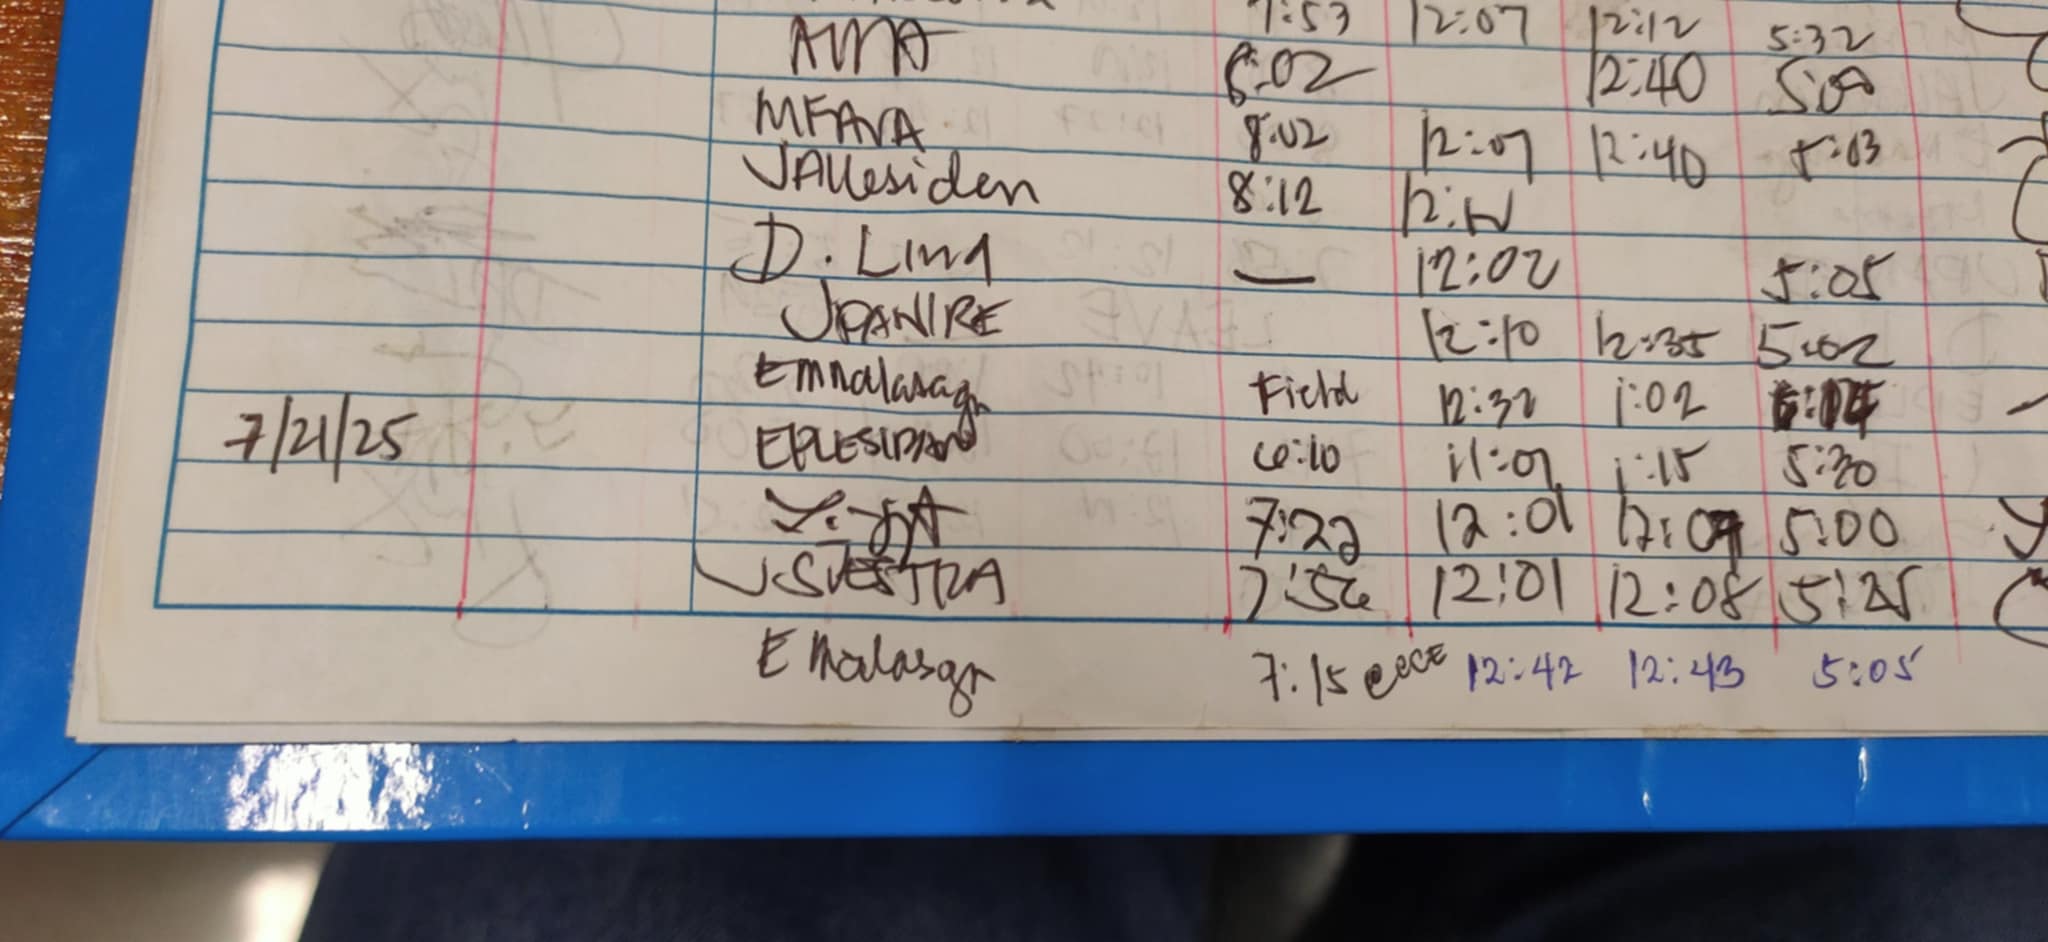 7:53 12:07 12:12 5:32
AMA 8:02 12:40 5:00
MFAVA 8:02 12:07 12:40 5:03
JAllesiden 8:12 12:12
D. Lina — 12:02 5:05
JPANIRE 12:10 12:35 5:02
Emnalasagr Field 12:32 1:02
7/21/25 EPLESIDAN 6:10 11:07 1:15 5:30
7:22 12:01 12:07 5:00
J.SVESTRA 7:56 12:01 12:08 5:25
E Malasgr 7:15 @ECCE 12:42 12:43 5:05